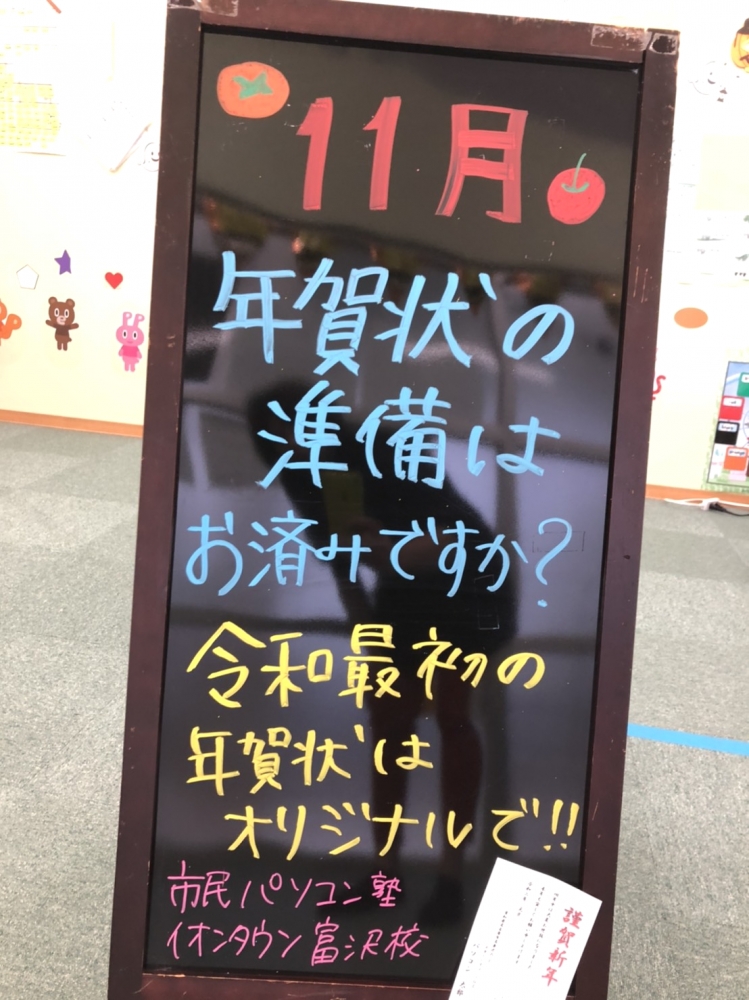 11月
年賀状の
準備は
お済みですか?
令和最初の
年賀状は
オリジナルで!!
市民パソコン塾
イオンタウン富沢校
謹賀新年